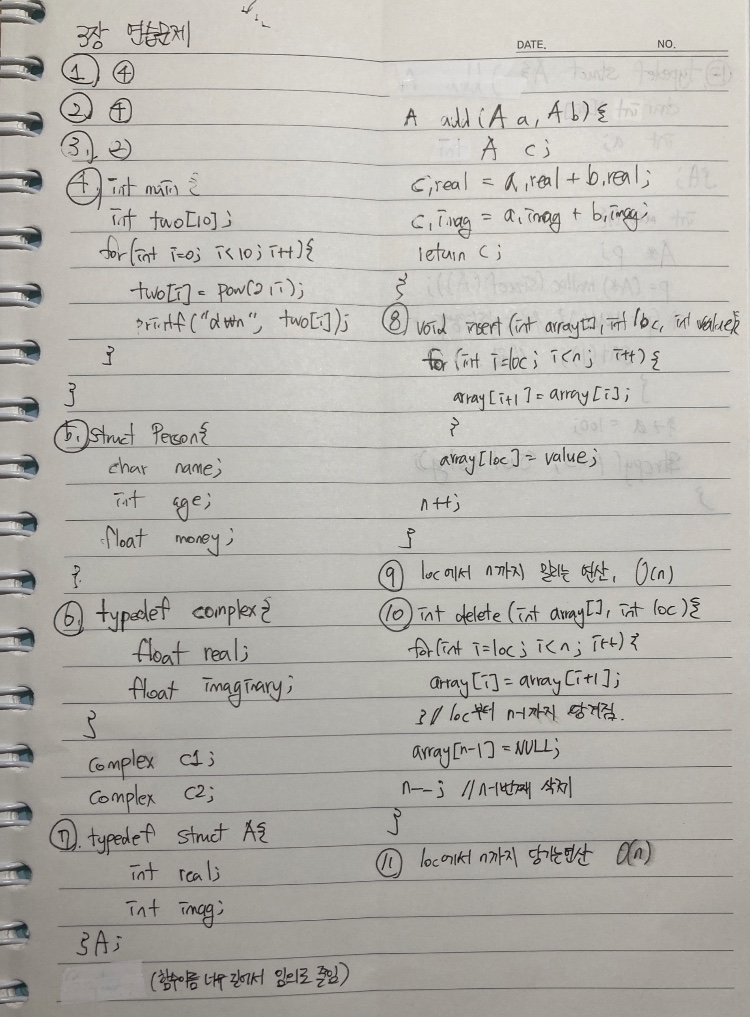 3장 연습문제
DATE.
NO.
① ④
② ④
③ ②
④ int main {
int two[10];
for(int i=0; i<10; i++){
two[i] = pow(2,i);
printf("d\n", two[i]);
}
}
⑤ struct Person{
char name;
int age;
float money;
}
⑥ typedef complex{
float real;
float imaginary;
}
complex c1;
complex c2;
⑦ typedef struct A{
int real;
int imag;
}A;
(함수이름 너무 길어서 임의로 줄임)
A add(A a, A b){
A c;
c.real = a.real + b.real;
c.imag = a.imag + b.imag;
return c;
}
⑧ void insert (int array[], int loc, int value){
for (int i=loc; i<n; i++) {
array[i+1] = array[i];
}
array[loc] = value;
n++;
}
⑨ loc에서 n까지 밀리는 연산, O(n)
⑩ int delete (int array[], int loc){
for(int i=loc; i<n; i++) {
array[i] = array[i+1];
} // loc부터 n-1까지 당겨짐.
array[n-1] = NULL;
n--; // n-1번째 삭제
}
⑪ loc에서 n까지 당기는연산 O(n)